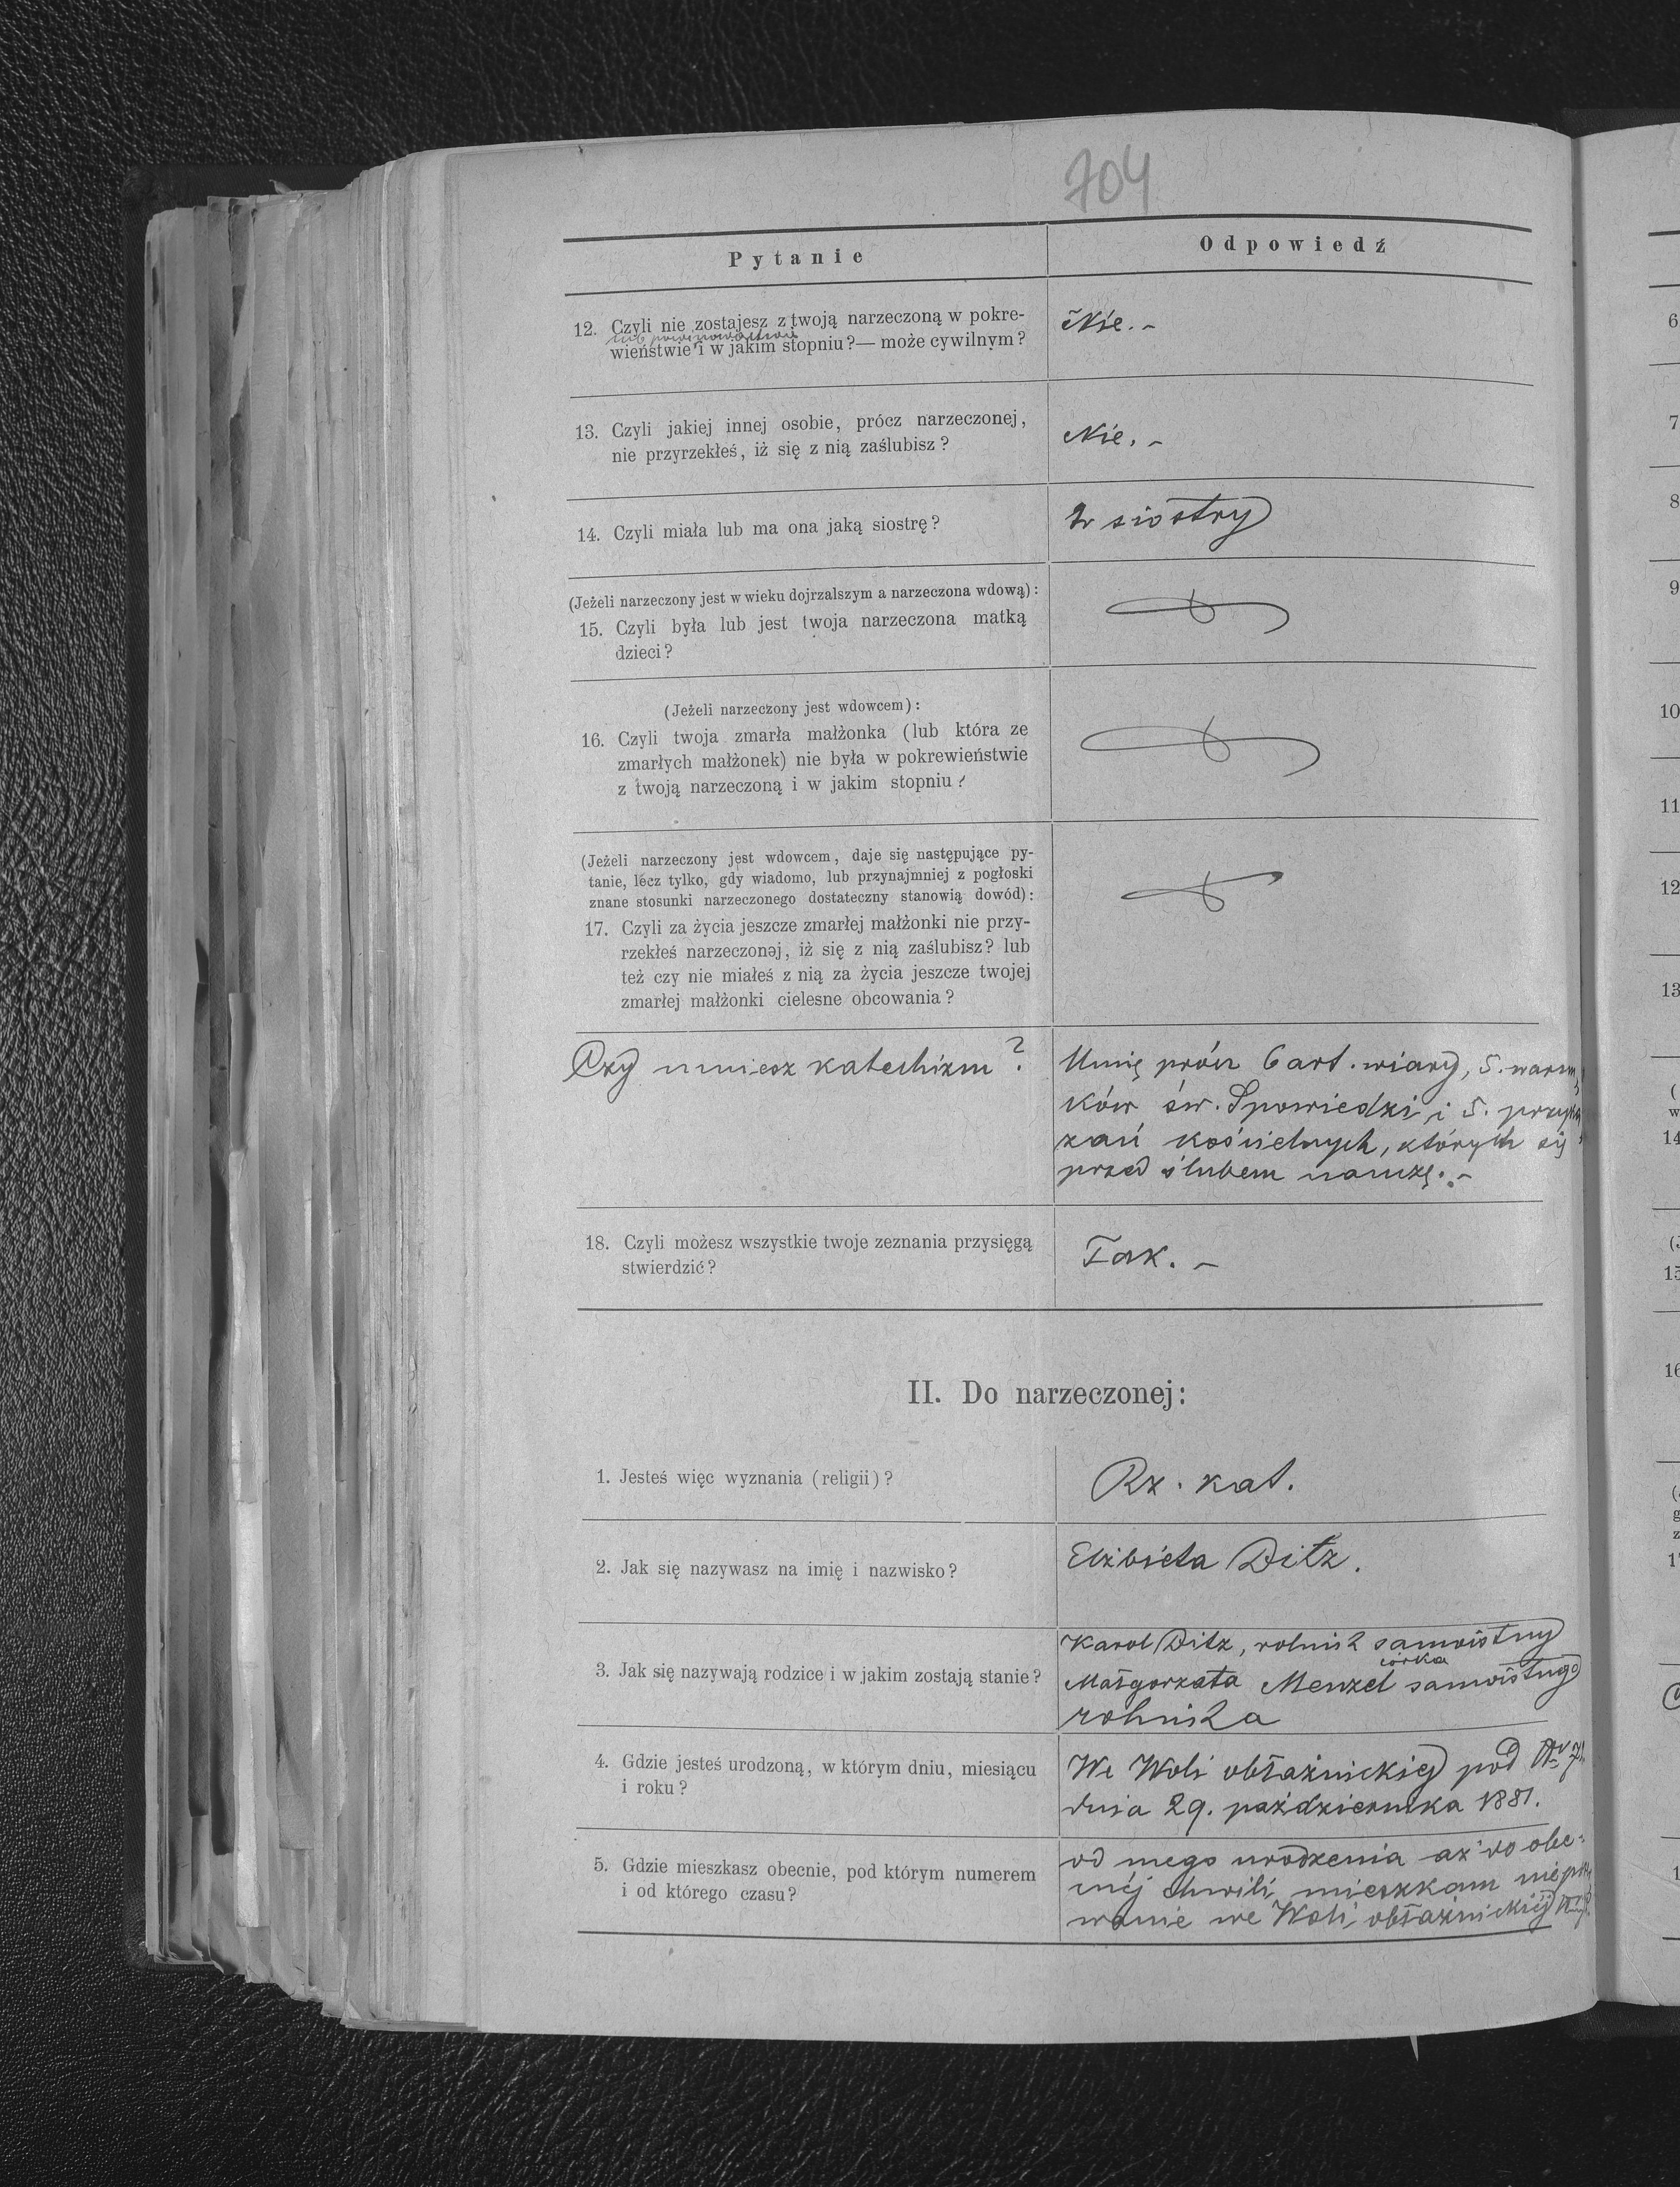 704
Pytanie
Odpowiedź
12. Czyli nie zostajesz z twoją narzeczoną w pokre-
lub powinowactwie
wieństwie i w jakim stopniu?— może cywilnym?
Nie. -
13. Czyli jakiej innej osobie, prócz narzeczonej,
nie przyrzekłeś, iż się z nią zaślubisz?
Nie. -
14. Czyli miała lub ma ona jaką siostrę?
2 siostry
(Jeżeli narzeczony jest w wieku dojrzalszym a narzeczona wdową):
15. Czyli była lub jest twoja narzeczona matką
dzieci?
(Jeżeli narzeczony jest wdowcem):
16. Czyli twoja zmarła małżonka (lub która ze
zmarłych małżonek) nie była w pokrewieństwie
z twoją narzeczoną i w jakim stopniu?
(Jeżeli narzeczony jest wdowcem, daje się następujące py-
tanie, lecz tylko, gdy wiadomo, lub przynajmniej z pogłoski
znane stosunki narzeczonego dostateczny stanowią dowód):
17. Czyli za życia jeszcze zmarłej małżonki nie przy-
rzekłeś narzeczonej, iż się z nią zaślubisz? lub
też czy nie miałeś z nią za życia jeszcze twojej
zmarłej małżonki cielesne obcowania?
Czy umiesz katechizm?
Umię prócz 6 art. wiary, 5. warun
ków św. Spowiedzi i 5. przyka
zań kościelnych, których się
przed ślubem nauczę. -
18. Czyli możesz wszystkie twoje zeznania przysięgą
stwierdzić?
Tak. -
II. Do narzeczonej:
1. Jesteś więc wyznania (religii)?
Rz. kat.
2. Jak się nazywasz na imię i nazwisko?
Elżbieta Ditz.
3. Jak się nazywają rodzice i w jakim zostają stanie?
Karol Ditz, rolnik samoistny
córka
Małgorzata Menzel samoistnego
rolnika
4. Gdzie jesteś urodzoną, w którym dniu, miesiącu
i roku?
We Woli obłaźnickiej pod Nr 7
dnia 29. października 1881.
5. Gdzie mieszkasz obecnie, pod którym numerem
i od którego czasu?
od mego urodzenia aż do obe-
cnéj chwili mieszkam
we Woli obłaźnickiéj
6
7
8
9
10
11
12
13
14
15
16